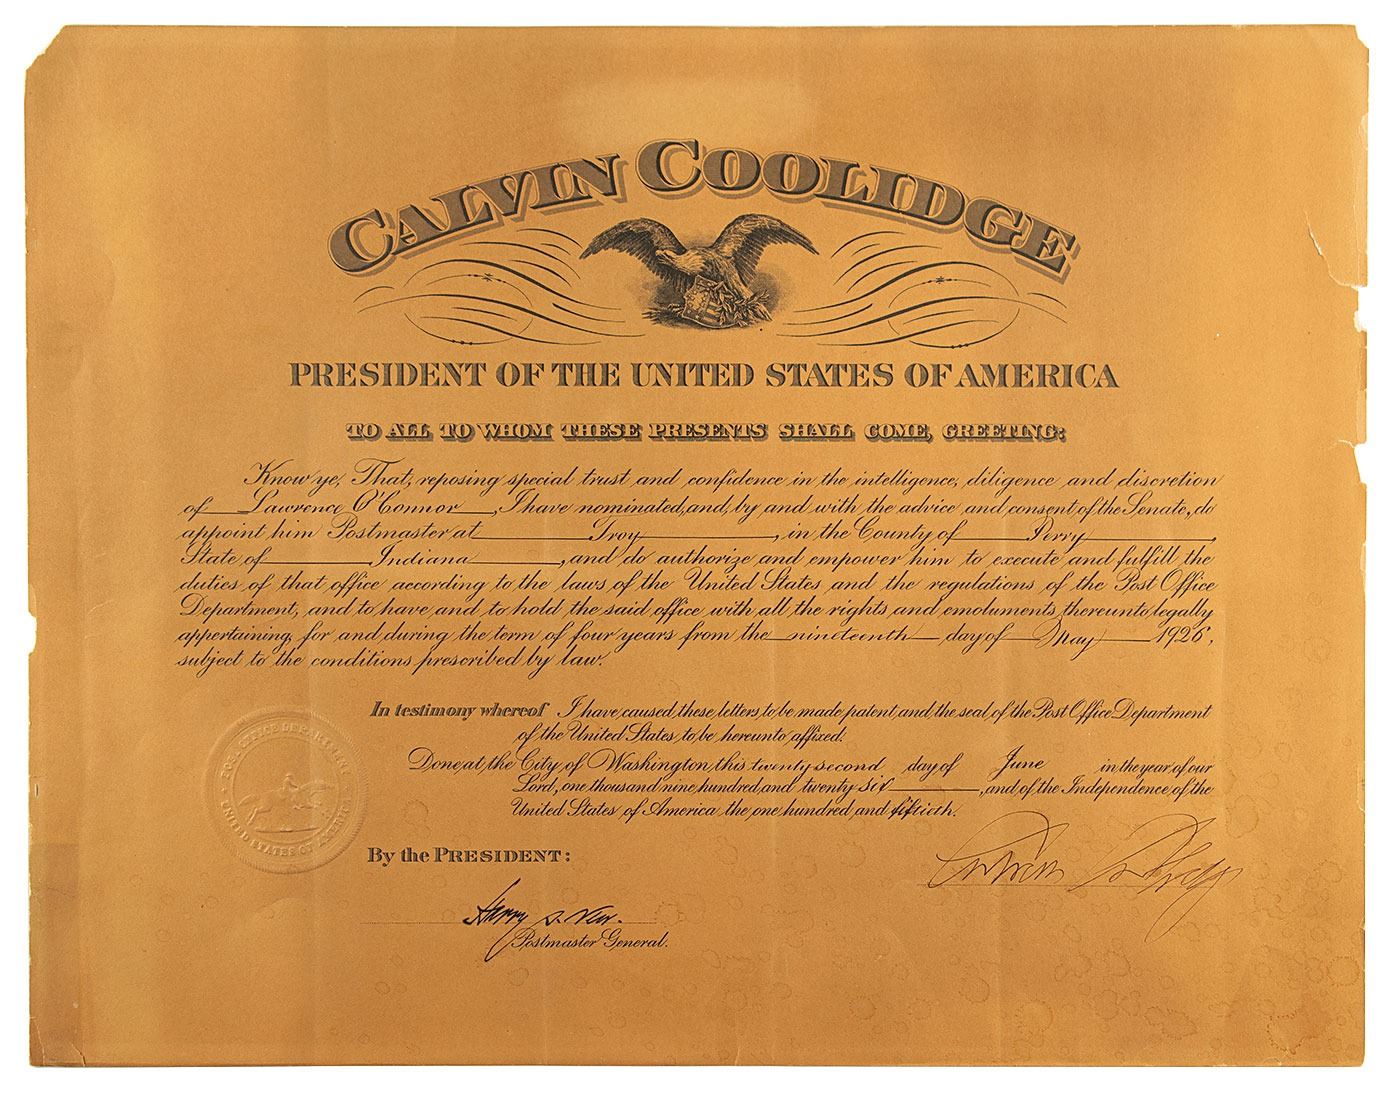 CALVIN COOLIDGE
PRESIDENT OF THE UNITED STATES OF AMERICA
TO ALL TO WHOM THESE PRESENTS SHALL COME, GREETING:
Know ye, That, reposing special trust and confidence in the intelligence, diligence and discretion
of Lawrence O'Connor, I have nominated, and, by and with the advice and consent of the Senate, do
appoint him Postmaster at Troy, in the County of Perry,
State of Indiana, and do authorize and empower him to execute and fulfill the
duties of that office according to the laws of the United States and the regulations of the Post Office
Department, and to have and to hold the said office with all the rights and emoluments thereunto legally
appertaining, for and during the term of four years from the nineteenth day of May 1926,
subject to the conditions prescribed by law.
In testimony whereof I have caused these letters to be made patent, and the seal of the Post Office Department
of the United States to be hereunto affixed.
Done at the City of Washington this twenty second day of June in the year of our
Lord, one thousand nine hundred and twenty six, and of the Independence of the
United States of America the one hundred and fiftieth.
POST OFFICE DEPARTMENT
UNITED STATES OF AMERICA
By the PRESIDENT:
Calvin Coolidge
Harry S. New.
Postmaster General.